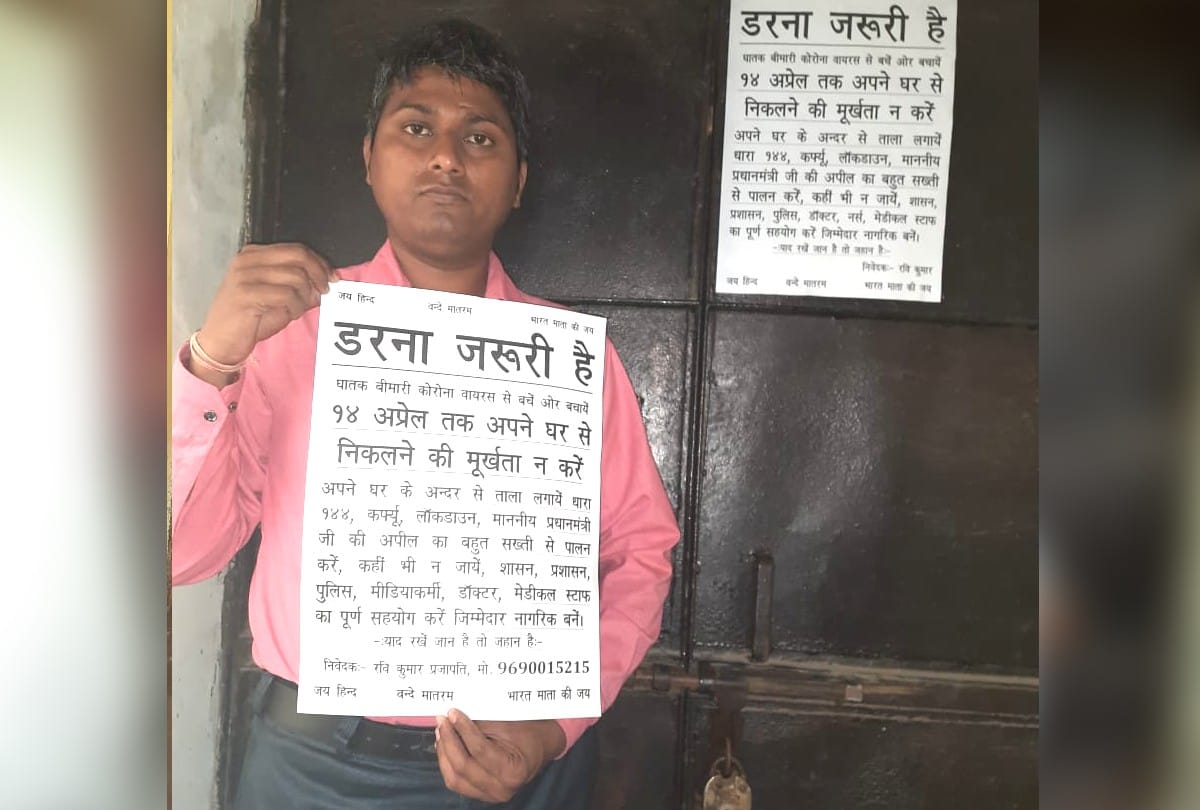 जय हिन्द वन्दे मातरम भारत माता की जय
डरना जरूरी है
घातक बीमारी कोरोना वायरस से बचें ओर बचायें
१४ अप्रेल तक अपने घर से
निकलने की मूर्खता न करें
अपने घर के अन्दर से ताला लगायें धारा
१४४, कर्फ्यू, लॉकडाउन, माननीय प्रधानमंत्री
जी की अपील का बहुत सख्ती से पालन
करें, कहीं भी न जायें, शासन, प्रशासन,
पुलिस, मीडियाकर्मी, डॉक्टर, मेडीकल स्टाफ
का पूर्ण सहयोग करें जिम्मेदार नागरिक बनें।
-:याद रखें जान है तो जहान है:-
निवेदकः- रवि कुमार प्रजापति, मो. 9690015215
जय हिन्द वन्दे मातरम भारत माता की जय
डरना जरूरी है
घातक बीमारी कोरोना वायरस से बचें ओर बचायें
१४ अप्रेल तक अपने घर से
निकलने की मूर्खता न करें
अपने घर के अन्दर से ताला लगायें
धारा १४४, कर्फ्यू, लॉकडाउन, माननीय
प्रधानमंत्री जी की अपील का बहुत सख्ती
से पालन करें, कहीं भी न जायें, शासन,
प्रशासन, पुलिस, डॉक्टर, नर्स, मेडीकल स्टाफ
का पूर्ण सहयोग करें जिम्मेदार नागरिक बनें।
-:याद रखें जान है तो जहान है:-
निवेदकः- रवि कुमार
जय हिन्द वन्दे मातरम भारत माता की जय